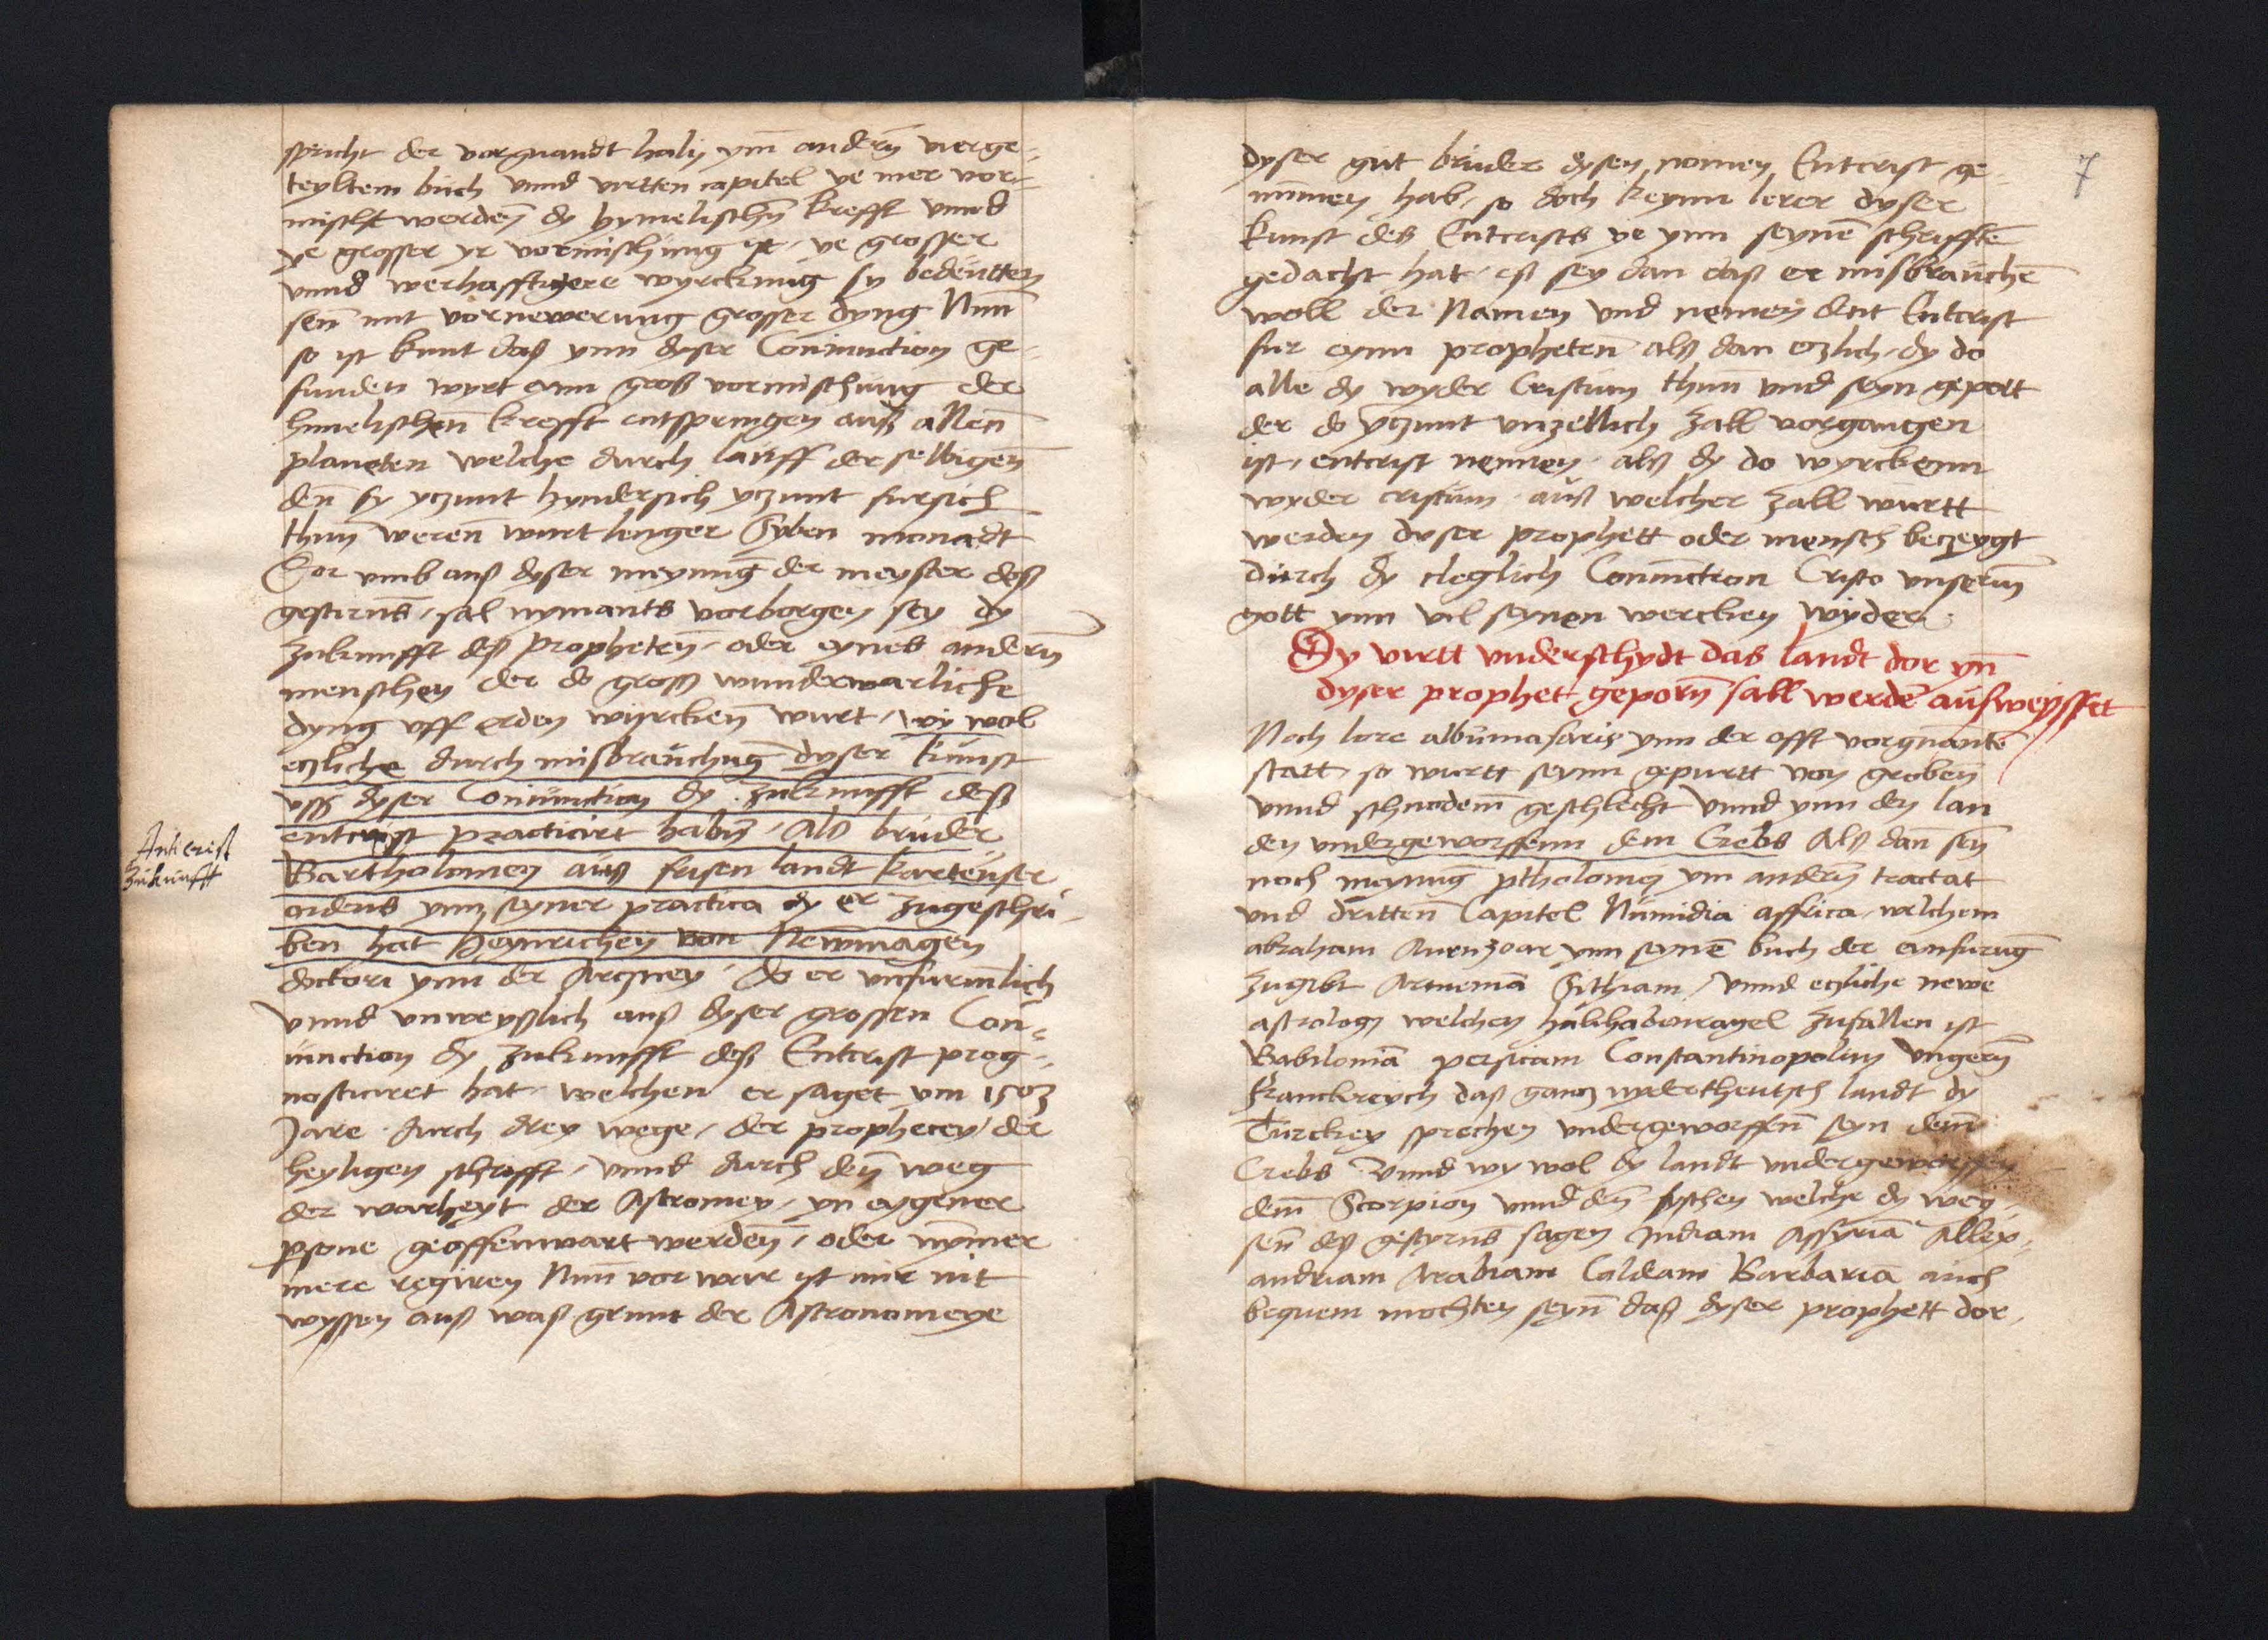 spricht der vorgnandt halÿ ym̄ andern̄ vierge-
teyltem buch vnnd virtten capitel ye mer vor-
mischt werden̄ dy hymelischn̄ krefft vnnd
ye grosser yr vormischung ist, ye grosser
vnnd werhafftigere wyrckung sy bedeutten
sen̄ mit vornewerung grosser dyng Nun
so ist kunt daß ynn dyser Coniunction ge-
funden wyrt eynn groß vormischung der
himelischen̄ krefft entspringen auß allen̄
planeten welche durch lauff der selbigen̄
den̄ sy yczunt hyndersich yczunt fursich
thun weren̄ wurt lenger Syben monadt
Dor vmb auß dyser meynung der meyster deß
gestirns, sal nymants vorborgen sey dy
zukunfft deß propheten̄, oder eynes andern̄
menschen der do groß wunderwarliche
dyng vff erden wyrcken̄ wurt, wy wol
eczliche durch misbrauchūg dyser kunst
vß dyser Coniunction dy zukunfft deß
entcrist practicirt habn̄, Als bruder
Bartholomey auß frisen landt karteuser
ordens ynn seyner practica dy er zugeschri-
ben hat Heynrichen von Newmagen
doctori ynn der Arczney, do er vnfurmlich
vnnd vnweyßlich auß dyser grossen Con-
iunction dy zukunfft deß Entcrist prog-
nosticiret hat, welchen er saget ym 1503
Jare durch drey wege, der prophecey der
heyligen schrifft, vnnd durch den̄ weg
der warheyt der Astromey, yn eygener
psone geoffenwart werden̄, oder nym̄er
mere regiren Nun vor war ist mir nit
wyssen auß waß grunt der Astronomeye
Anticrist
Zukunfft
7
dyser gut bruder dysen nomen Entcrist ge-
nu̅men hab, so doch keynn lerer dyser
kunst des Entcrists ye ynn seynē schrifftē
gedacht hat, eß sey dan daß er misbrauchē
woll der Namen vnd nemen den Entcrist
fur eynn propheten̄ alß dan eczlich, dy do
alle dy wyder Cristum thun vnd seyn gepott
der do yczunt vnzellich zall vorgangen
ist, entcrist nennen, alß dy do wyrckenn
wyder cristum auß welcher zall wurtt
werden dyser prophett oder mensch beczeygt
durch dy cleglich Coniunction Cristo vnserm̄
gott ynn vil seynen wercken wyder.
Dy virtt vnderschydt das landt dor yn̄
dyser prophet geporn̄ sall werdē ausweysset
Noch lere albumasaris ynn der offt vorgnantē
statt, so wurtt seynn gepurtt von groben̄
vnnd schnodem̄ geschlecht vnnd ynn den lan
den vndergeworffenn dem Crebs Alß dan̄ sen̄
noch meynung ptholomej ym andern̄ tractat
vnd dritten̄ Capitel Numidia affrica, welchem
abraham Auenzoar ynn seynē buch der eynfurūg
zugibt Armeniā Sithiam, vnnd eczliche newe
astrologj welchen halihabenragel zufallen ist
Babiloniā persicam Constantinopolim vngern̄
Franckreych daß gancz nydertheutsch landt dy
Turckey sprechen vndergeworffn̄ seyn dem̄
Crebs Vnnd wy wol dy landt vndergeworffen
dem̄ Scorpion vnnd den̄ fyschen welche dy wey-
sen̄ deß gestyrns sagen Indiam Assyriā Allex-
andriam Arabiam Caldeam Barbariā auch
bequem mochten seyn̄ daß dyser prophett dor,